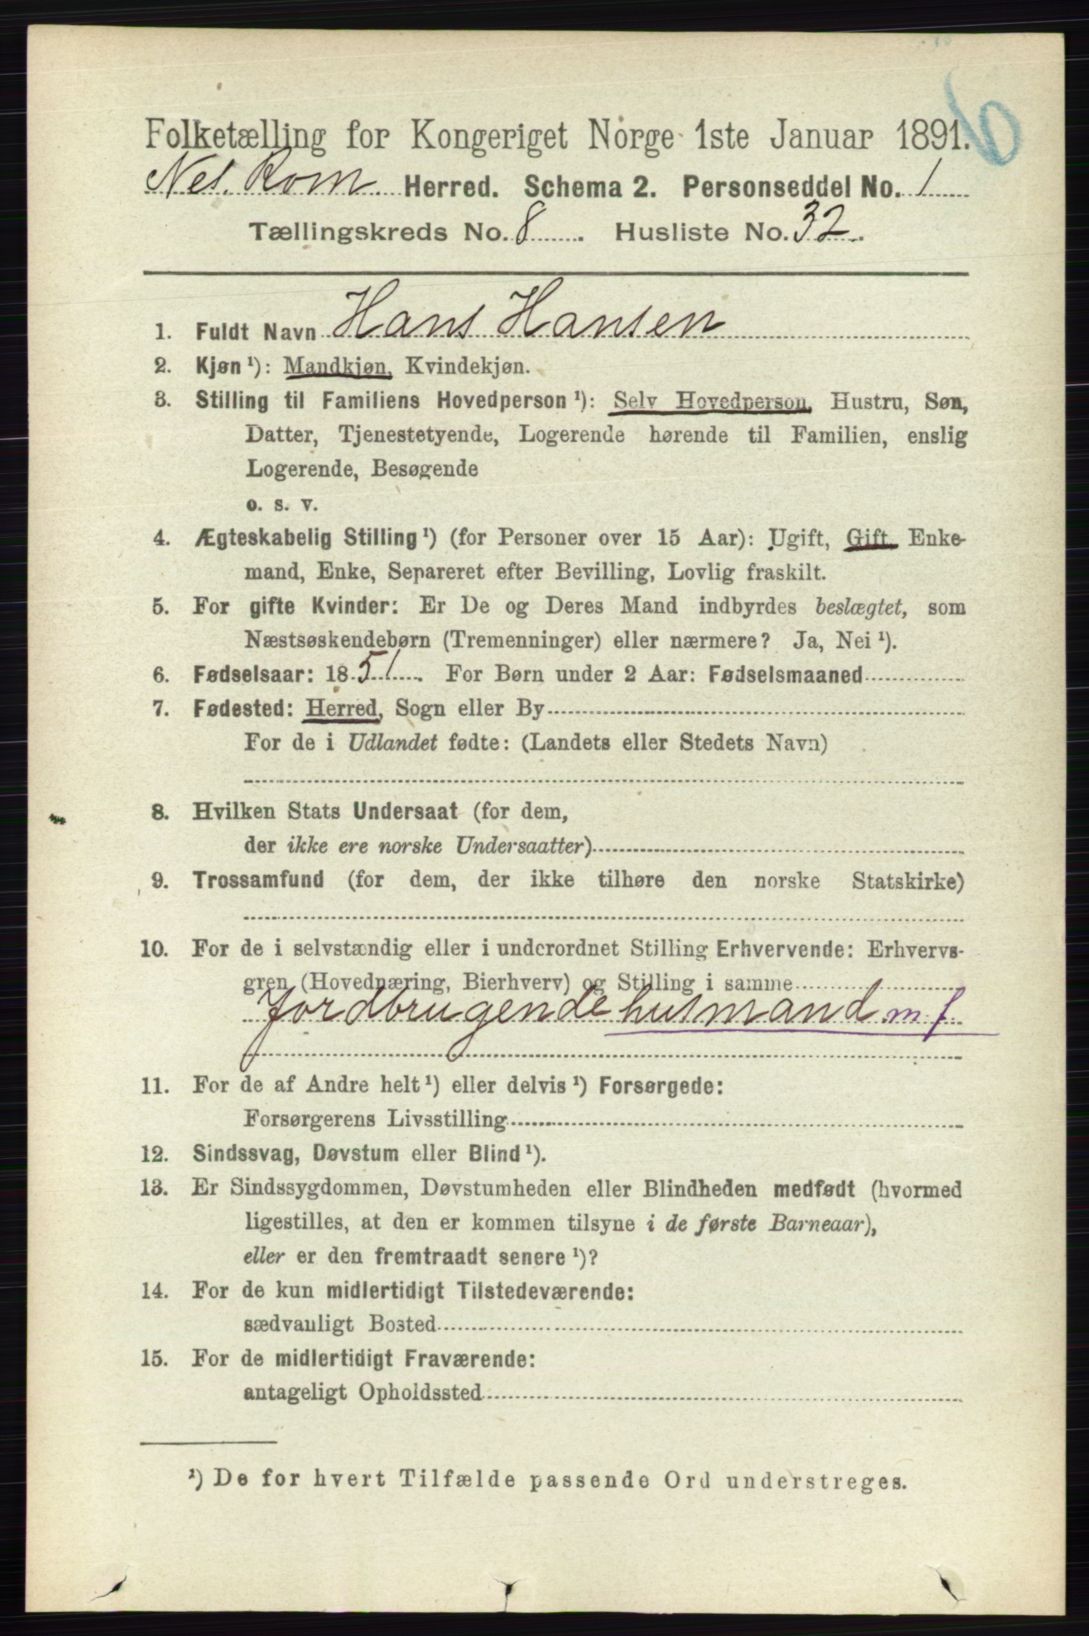 Folketælling for Kongeriget Norge 1ste Januar 1891.
6
Nes. Rom Herred. Schema 2. Personseddel No. 1
Tællingskreds No. 8. Husliste No. 32.
1. Fuldt Navn Hans Hansen
2. Kjøn ¹): Mandkjøn, Kvindekjøn.
3. Stilling til Familiens Hovedperson ¹): Selv Hovedperson, Hustru, Søn,
Datter, Tjenestetyende, Logerende hørende til Familien, enslig
Logerende, Besøgende
o. s. v.
4. Ægteskabelig Stilling ¹) (for Personer over 15 Aar): Ugift, Gift, Enke-
mand, Enke, Separeret efter Bevilling, Lovlig fraskilt.
5. For gifte Kvinder: Er De og Deres Mand indbyrdes beslægtet, som
Næstsøskendebørn (Tremenninger) eller nærmere? Ja, Nei ¹).
6. Fødselsaar: 1851. For Børn under 2 Aar: Fødselsmaaned
7. Fødested: Herred, Sogn eller By
For de i Udlandet fødte: (Landets eller Stedets Navn)
8. Hvilken Stats Undersaat (for dem,
der ikke ere norske Undersaatter)
9. Trossamfund (for dem, der ikke tilhøre den norske Statskirke)
10. For de i selvstændig eller i underordnet Stilling Erhvervende: Erhvervs-
gren (Hovednæring, Bierhverv) og Stilling i samme
Jordbrugende husmand m. f.
11. For de af Andre helt ¹) eller delvis ¹) Forsørgede:
Forsørgerens Livsstilling
12. Sindssvag, Døvstum eller Blind ¹).
13. Er Sindssygdommen, Døvstumheden eller Blindheden medfødt (hvormed
ligestilles, at den er kommen tilsyne i de første Barneaar),
eller er den fremtraadt senere ¹)?
14. For de kun midlertidigt Tilstedeværende:
sædvanligt Bosted
15. For de midlertidigt Fraværende:
antageligt Opholdssted
¹) De for hvert Tilfælde passende Ord understreges.